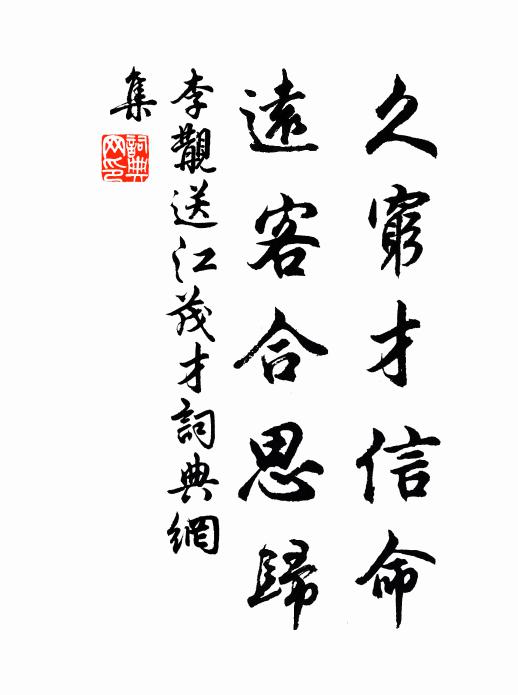 久窮才信命
遠客合思歸
李覯送江茂才詞典網
集
詞典網印